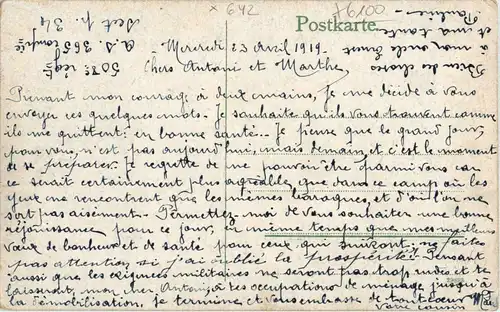 × 642
76100
Postkarte
Mercredi 23 Avril 1919.
Chers Antoni et Marthe,
Prenant mon courage à deux mains, je me décide à vous
envoyer ces quelques mots. Je souhaite qu'ils vous trouvent comme
ils me quittent: en bonne santé... Je pense que le grand jour,
pour vous, n'est pas aujourd'hui, mais demain, et c'est le moment
de se préparer. Je regrette de ne pouvoir être parmi vous car
ce serait certainement plus agréable que dans ce camp où les
yeux ne rencontrent que les mêmes baraques, et d'où l'on ne
sort pas aisément. Permettez-moi de vous souhaiter une bonne
réjouissance pour ce jour, en même temps que mes meilleurs
vœux de bonheur et de santé pour ceux qui suivront; ne faites
pas attention si j'ai oublié la prospérité! Pensant
aussi que les exigences militaires ne seront pas trop rudes et te
laisseront, mon cher Antoni, à tes occupations de ménage jusqu'à
la démobilisation, je termine et vous embrasse de tout cœur
Votre cousin
Bien de choses
à mon oncle
et ma tante
Pauline
508e régt
A.S. 365
Sect. p. 34